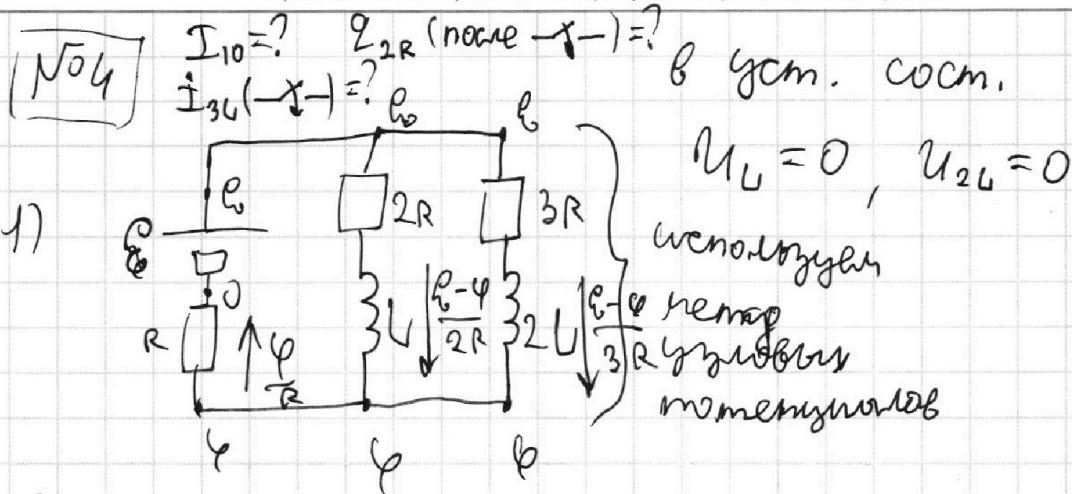 №04 I₁₀=? q₂R (после ) =?
İ₃L ( ) =? в уст. сост.
U_L = 0, U₂L = 0
используем
метод
узловых
потенциалов
1)
ℰ ℰ
ℰ
ℰ
2R 3R
0
R φ/R
L (ℰ-φ)/2R 2L (ℰ-φ)/3R
φ φ φ